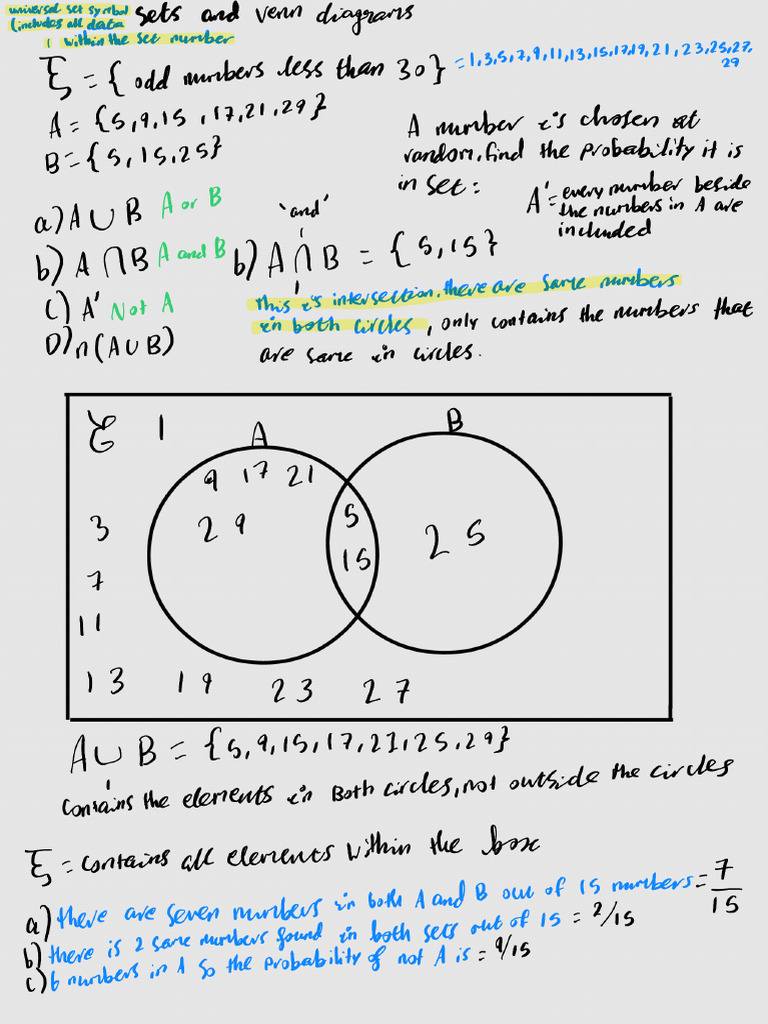 universal set symbol
(includes all data
within the set number
sets and venn diagrams
ξ = { odd numbers less than 30} = 1,3,5,7,9,11,13,15,17,19,21,23,25,27,
29
A = {5,9,15,17,21,29}
B = {5,15,25}
A number is chosen at
random, find the probability it is
in set:
A' = every number beside
the numbers in A are
included
a) A ∪ B A or B
b) A ∩ B A and B
c) A' Not A
D) n(A∪B)
'and'
b) A ∩ B = {5,15}
This is intersection, there are same numbers
in both circles, only contains the numbers that
are same in circles.
ξ 1 A B
9 17 21
3 29 5 25
15
7
11
13 19 23 27
A∪B = {5,9,15,17,21,25,29}
contains the elements in Both circles, not outside the circles
ξ = contains all elements within the box
a) there are seven numbers in both A and B out of 15 numbers = 7/15
b) there is 2 same numbers found in both sets out of 15 = 2/15
c) 6 numbers in A so the probability of not A is = 9/15